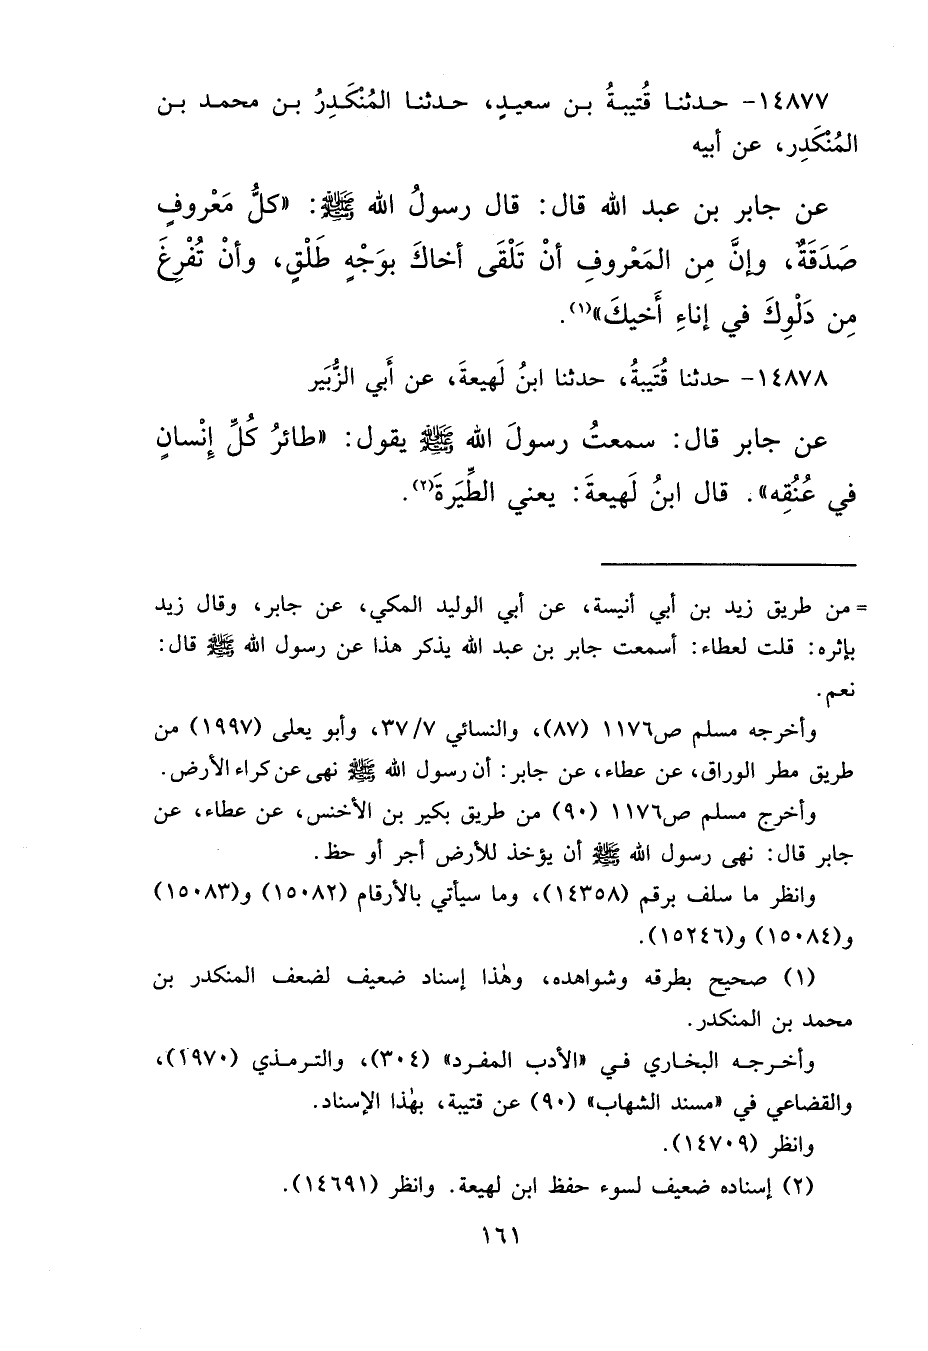 ١٤٨٧٧- حدثنا قُتيبةُ بن سعيدٍ، حدثنا المُنْكَدِرُ بن محمد بن
المُنْكَدِر، عن أبيه
عن جابر بن عبد الله قال: قال رسولُ الله ﷺ: «كلُّ مَعْروفٍ
صَدَقَةٌ، وإنَّ مِن المَعْروفِ أنْ تَلْقَى أخاكَ بوَجْهٍ طَلْقٍ، وأنْ تُفْرِغَ
مِن دَلْوِكَ في إناءِ أَخيكَ»(١).
١٤٨٧٨- حدثنا قُتَيبةُ، حدثنا ابنُ لَهيعةَ، عن أَبي الزُّبَير
عن جابر قال: سمعتُ رسولَ الله ﷺ يقول: «طائرُ كُلِّ إِنْسانٍ
في عُنُقِه». قال ابنُ لَهيعةَ: يعني الطِّيَرةَ(٢).
= من طريق زيد بن أبي أنيسة، عن أبي الوليد المكي، عن جابر، وقال زيد
بإثره: قلت لعطاء: أسمعت جابر بن عبد الله يذكر هذا عن رسول الله ﷺ قال:
نعم.
وأخرجه مسلم ص١١٧٦ (٨٧)، والنسائي ٣٧/٧، وأبو يعلى (١٩٩٧) من
طريق مطر الوراق، عن عطاء، عن جابر: أن رسول الله ﷺ نهى عن كراء الأرض.
وأخرج مسلم ص١١٧٦ (٩٠) من طريق بكير بن الأخنس، عن عطاء، عن
جابر قال: نهى رسول الله ﷺ أن يؤخذ للأرض أجر أو حظ.
وانظر ما سلف برقم (١٤٣٥٨)، وما سيأتي بالأرقام (١٥٠٨٢) و(١٥٠٨٣)
و(١٥٠٨٤) و(١٥٢٤٦).
(١) صحيح بطرقه وشواهده، وهٰذا إسناد ضعيف لضعف المنكدر بن
محمد بن المنكدر.
وأخرجه البخاري في «الأدب المفرد» (٣٠٤)، والترمذي (١٩٧٠)،
والقضاعي في «مسند الشهاب» (٩٠) عن قتيبة، بهٰذا الإسناد.
وانظر (١٤٧٠٩).
(٢) إسناده ضعيف لسوء حفظ ابن لهيعة. وانظر (١٤٦٩١).
١٦١